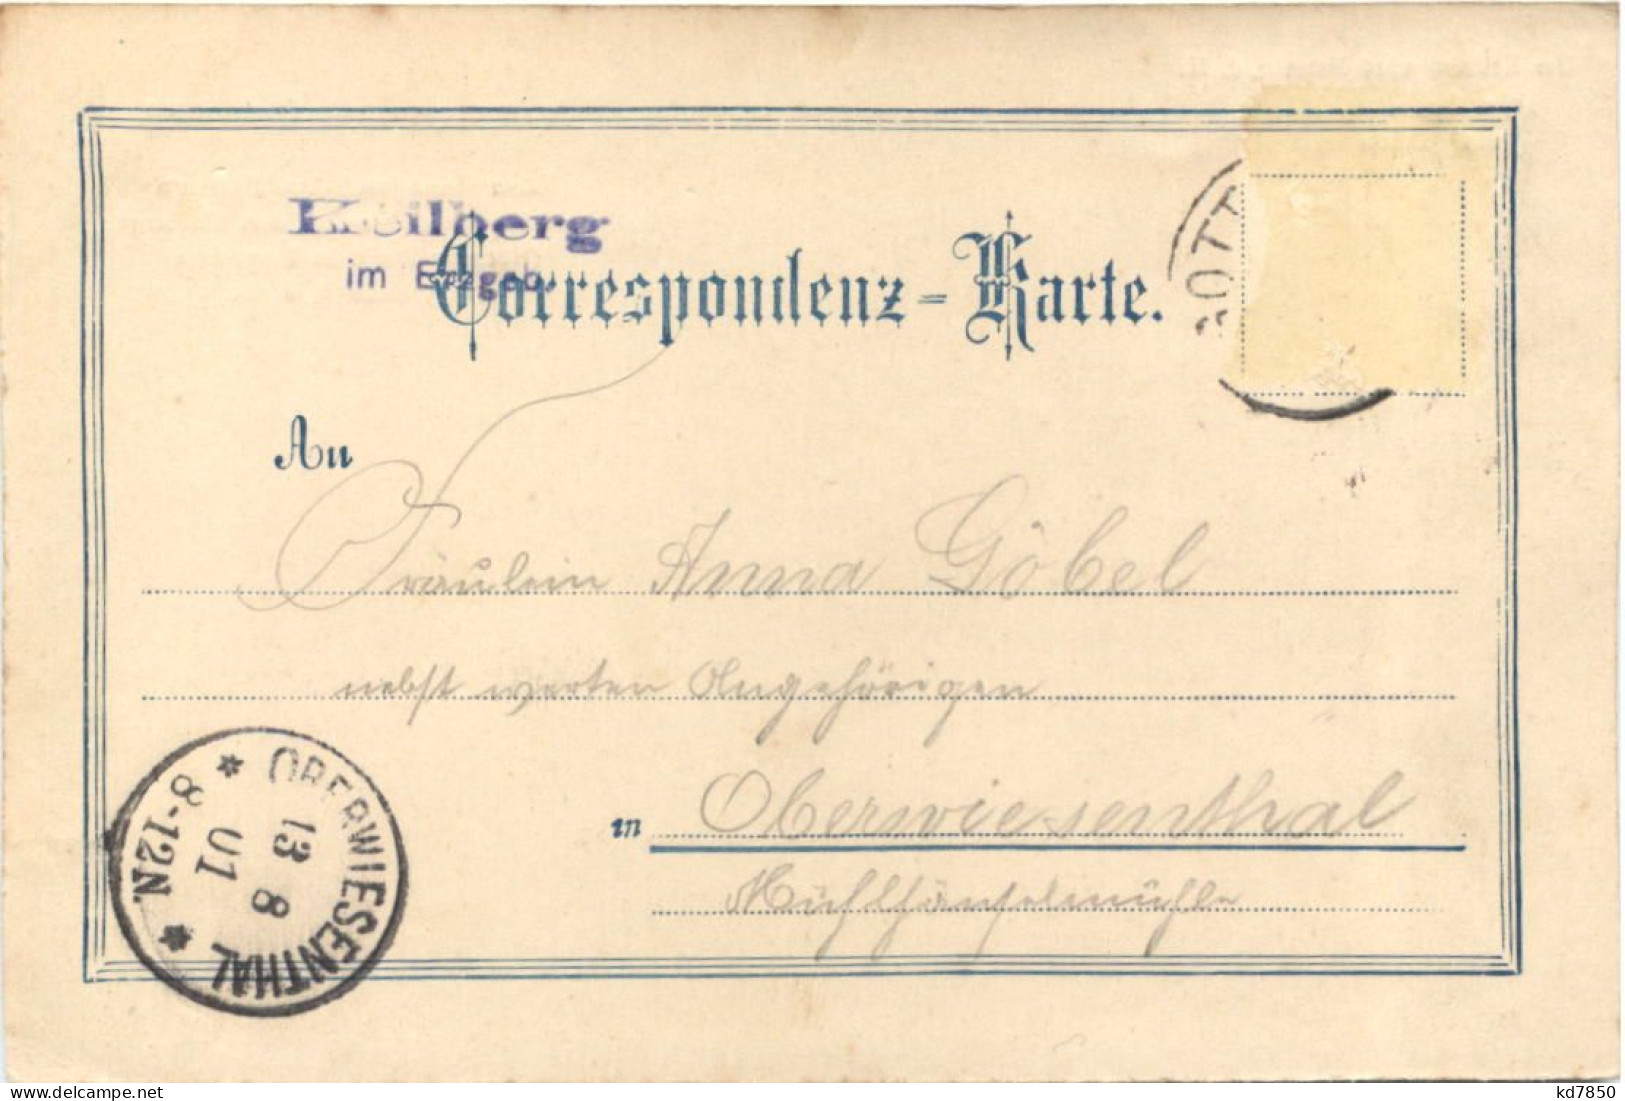 Keilberg
im Erzgeb.
Correspondenz-Karte.
GOTT
An
Fräulein Anna Göbel
nebst werten Angehörigen
in Oberwiesenthal
OBERWIESENTHAL
13 8
01
8-12N.
kd7850